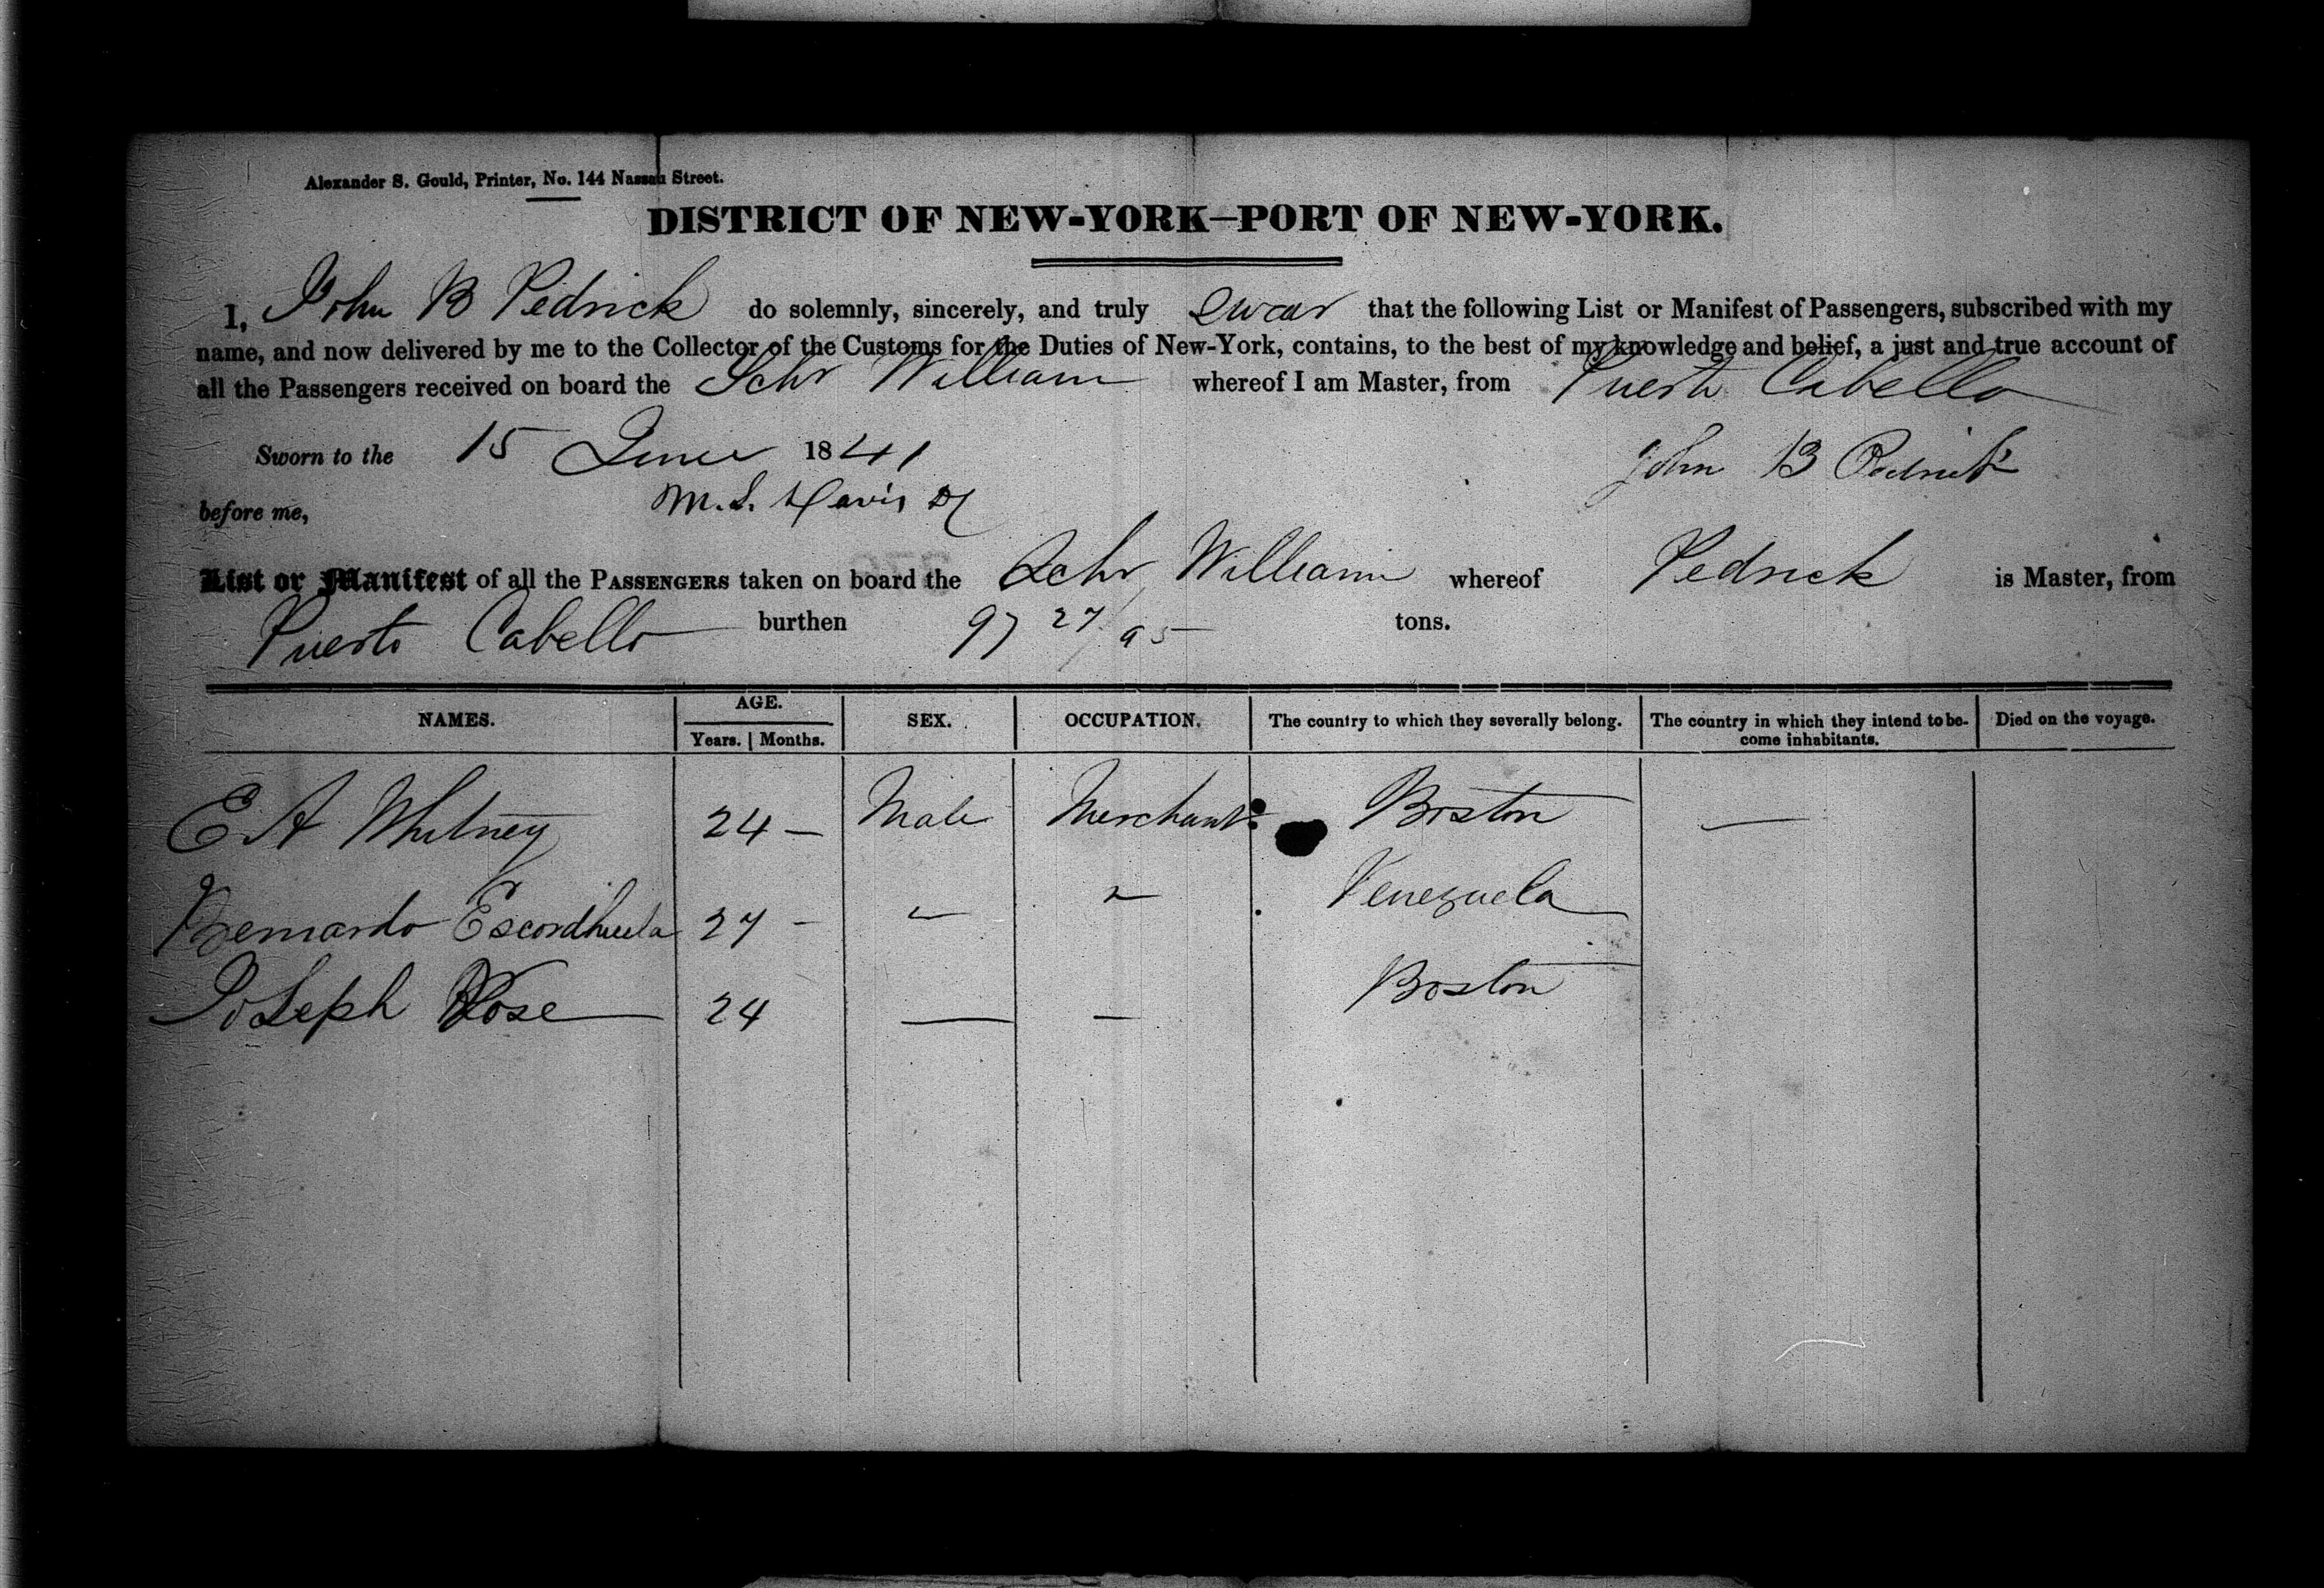 Alexander S. Gould, Printer, No. 144 Nassau Street.
DISTRICT OF NEW-YORK—PORT OF NEW-YORK.
I, John B Pedrick do solemnly, sincerely, and truly swear that the following List or Manifest of Passengers, subscribed with my
name, and now delivered by me to the Collector of the Customs for the Duties of New-York, contains, to the best of my knowledge and belief, a just and true account of
all the Passengers received on board the Schr William whereof I am Master, from Puerto Cabello
Sworn to the 15 June 1841 John B Pedrick
before me, M. L. Davis
List or Manifest of all the PASSENGERS taken on board the Schr William whereof Pedrick is Master, from
Puerto Cabello burthen 97 27/95 tons.
NAMES. AGE. SEX. OCCUPATION. The country to which they severally belong. The country in which they intend to be- Died on the voyage.
Years. | Months. come inhabitants.
E A Whitney 24 — Male Merchant Boston —
Bernardo 27 - Venezuela
Joseph Vose 24 — — Boston